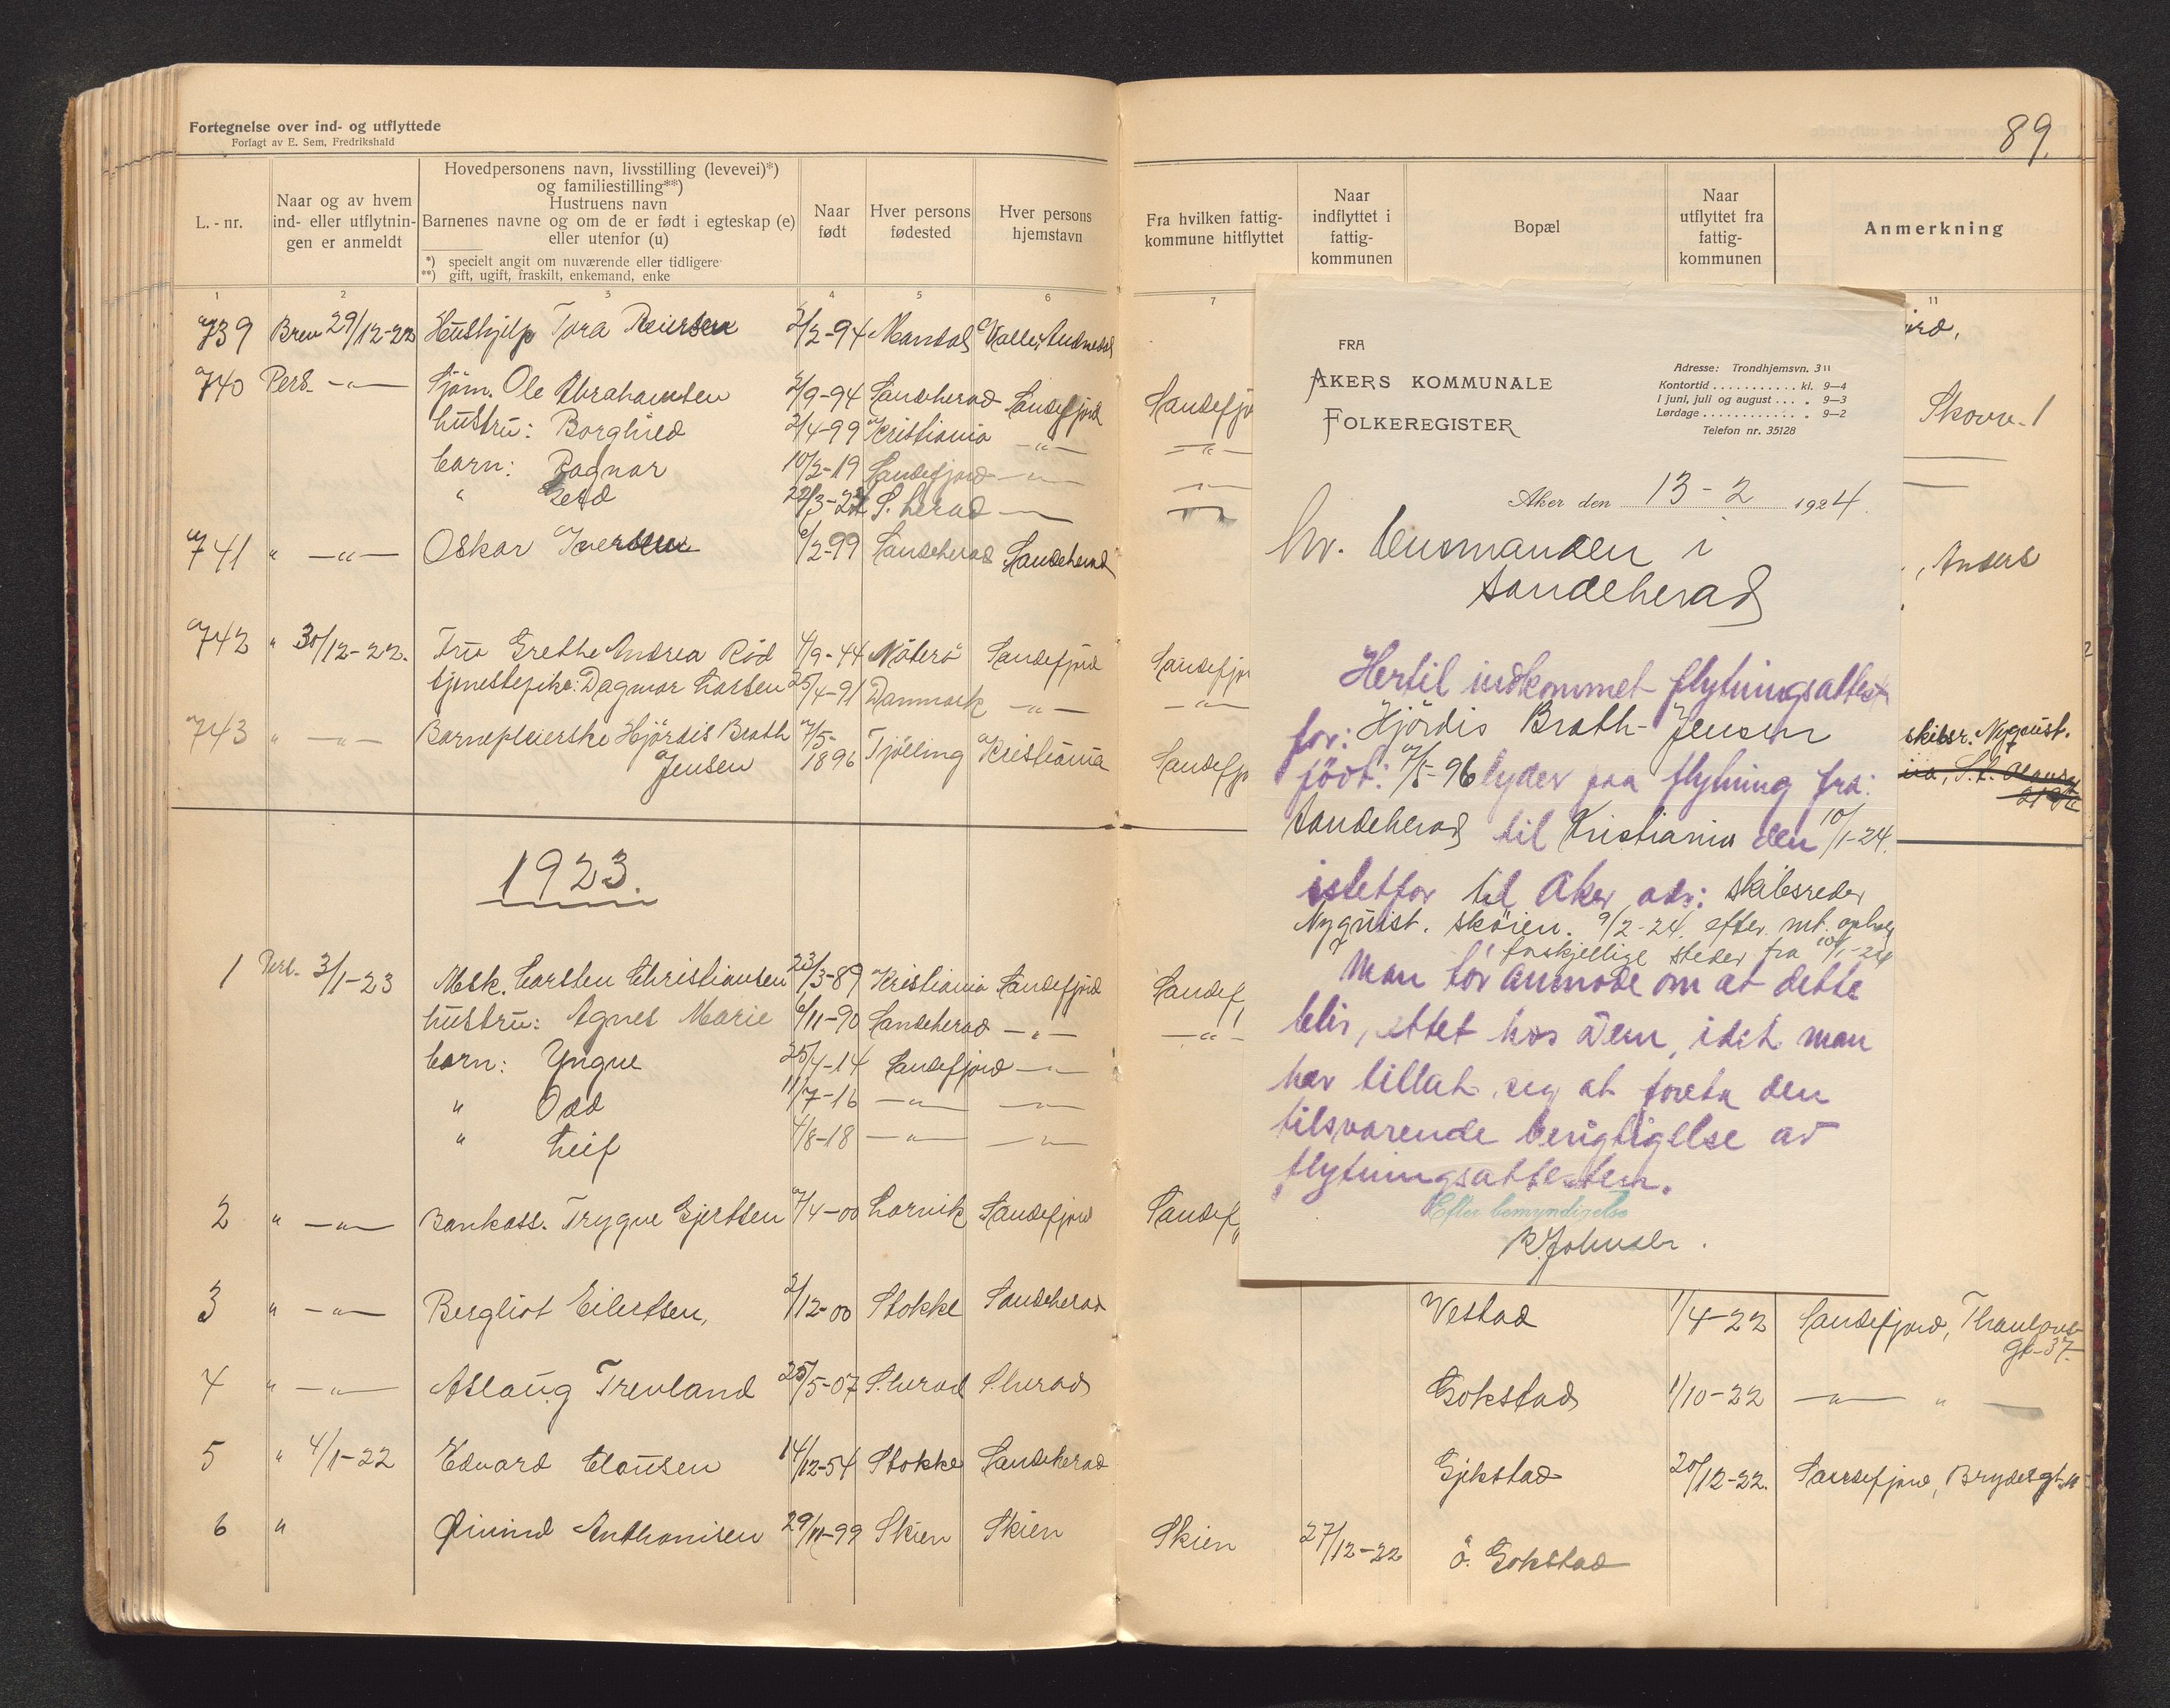 Fortegnelse over ind- og utflyttede
Forlagt av E. Sem, Fredrikshald
89.
L.-nr.
Naar og av hvem ind- eller utflytnin- gen er anmeldt
Hovedpersonens navn, livsstilling (levevei)*)
og familiestilling**)
Hustruens navn
Barnenes navne og om de er født i egteskap (e)
eller utenfor (u)
*) specielt angit om nuværende eller tidligere
**) gift, ugift, fraskilt, enkemand, enke
Naar født
Hver persons fødested
Hver persons hjemstavn
Fra hvilken fattig- kommune hitflyttet
Naar indflyttet i fattig- kommunen
Bopæl
Naar utflyttet fra fattig- kommunen
Anmerkning
1 2 3 4 5 6 7 11
739 Brev 29/12-22 Hushjelp Tora Reiersen 2/2-94 Mandal Valle,
740 Pers. -"- Sjøm. Ole Abrahamsen 2/9-94 Sandeherad Sandefjord Skovv. 1
hustru: Borghild 2/4-99 Kristiania -"- -"-
barn: Ragnar 10/2-19 Sandefjord -"- -"-
" Gerd 22/3-22 S.herad -"- -"-
741 " -"- Oskar Iversen 6/2-99 Sandeherad Sandeherad , Anders
742 " 30/12-22. Fru Grethe Andrea Rød 4/9-44 Nøterö Sandefjord
tjenestepike: Dagmar Larsen 25/4-91 Danmark -"- -"-
743 " -"- Barnepleierske Hjørdis Brath 7/5- Tjølling Kristiania skibsr. Nyquist.
Jensen 1896
1923.
1 Pers. 3/1-23 Msk. Carsten Christiansen 23/3-89 Kristiania Sandefjord Sandef
hustru: Agnes Marie 6/11-90 Sandeherad -"- -"-
barn: Yngve 25/4-14 Sandefjord -"-
" Odd 11/7-16 -"- -"-
" Leif 4/8-18 -"- -"-
2 " -"- Bankass. Trygve Gjertsen 7/4-00 Larvik Sandefjord Sandef
3 " -"- Bergliot Eilertsen, 2/12-00 Stokke Sandeherad Vestad 1/4-22 Sandefjord, Thaulows-
gt. 37.
4 " -"- Aslaug Trevland 25/5-07 S.herad S.herad Gokstad 1/10-22 -"- "
5 " 4/1-22 Edvard Clausen 14/12-54 Stokke Sandeherad Gjekstad 20/12-22. Sandefjord, Brydesgt.
6 " Øivind Anthonisen 29/11-99 Skien Skien Skien 27/12-22 ö. Gokstad
FRA
AKERS KOMMUNALE
FOLKEREGISTER
Adresse: Trondhjemsvn. 3 II
Kontortid . . . . . . . . . . . kl. 9—4
I juni, juli og august . . . „ 9—3
Lørdage . . . . . . . . . . . . „ 9—2
Telefon nr. 35128
Aker den 13-2 1924.
hr. lensmanden i
Sandeherad
Hertil indkommet flytningsattest
for: Hjördis Brath-Jensen
født: 7/5-96 lyder paa flytning fra:
Sandeherad til Kristiania den 10/1-24.
istetfor til Aker adr: skibsreder
Nyquist. Skøien. 9/2-24. efter mt. ophold
forskjellige steder fra 10/1-24
Man tør anmode om at dette
blir rettet hos Dem, idet man
har tillatt sig at foreta den
tilsvarende berigtigelse av
flytningsattesten.
Efter bemyndigelse
R. Johnsen.